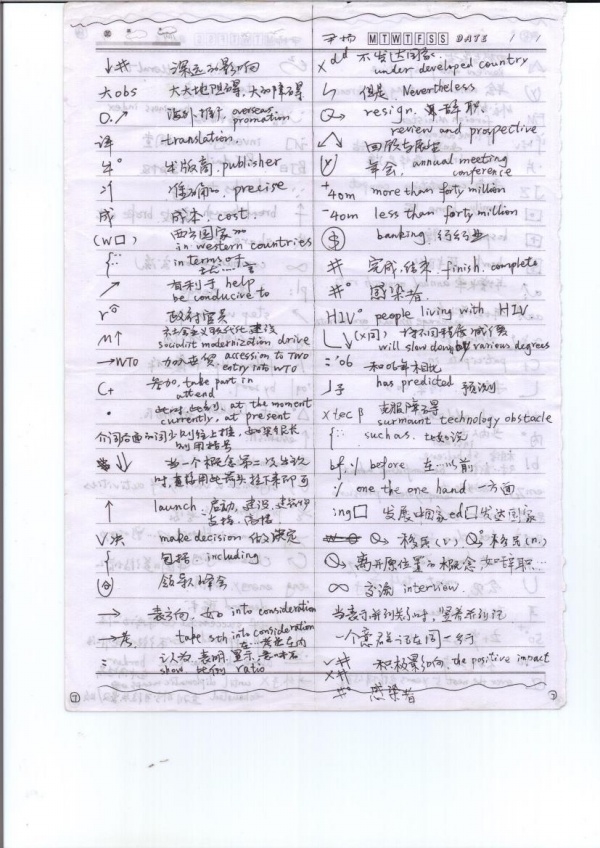 MTWTFSS DATE
↓# 深远的影响
大obs 大大地阻碍,大的障碍
O.↗ 海外推广, overseas promotion
译 translation
出版商, publisher
准确 precise
成 成本, cost
(W口) 西方国家 in western countries
{ in terms of
↗ 有利于 help be conducive to
政府官员
M↑ 社会主义现代化建设 socialist modernization drive
→WTO 加入世贸 accession to TWO entry into WTO
C+ 参加, take part in attend
• 此时,此刻, at the moment currently, at present
↓ 当一个概念第二次出现时,直接用此箭头拉下来即可
↑ launch, 启动, 建设
V决 make decision 做决定
{ 包括, including
领导人峰会
→ 表方向, 如 into consideration
→考 take sth into consideration
∴ 认为, 表明, 显示
show
x dd 不发达国家, under developed country
但是, Nevertheless
resign. 辞职
回顾与展望 review and prospective
年会, annual meeting conference
+40m more than forty million
-40m less than forty million
$ banking 行业
# 完成, 结束 finish, complete
#° 感染者
HIV° people living with HIV
(x同) 将不同程度减慢 will slow down by various degrees
='06 和06年相比
has predicted 预测
x tec β 克服障碍 surmount technology obstacle
{ such as. 比如说
bf, before 在...以前
one the one hand 一方面
ing口 发展中国家 ed口 发达国家
移民(v.) 移民(n.)
离开原位置的概念 如辞职...
∞ 交流 interview.
当表示并列关系时, 竖着并列记
一个意群记在同一行
✓# 积极影响, the positive impact
x#
#° 感染者